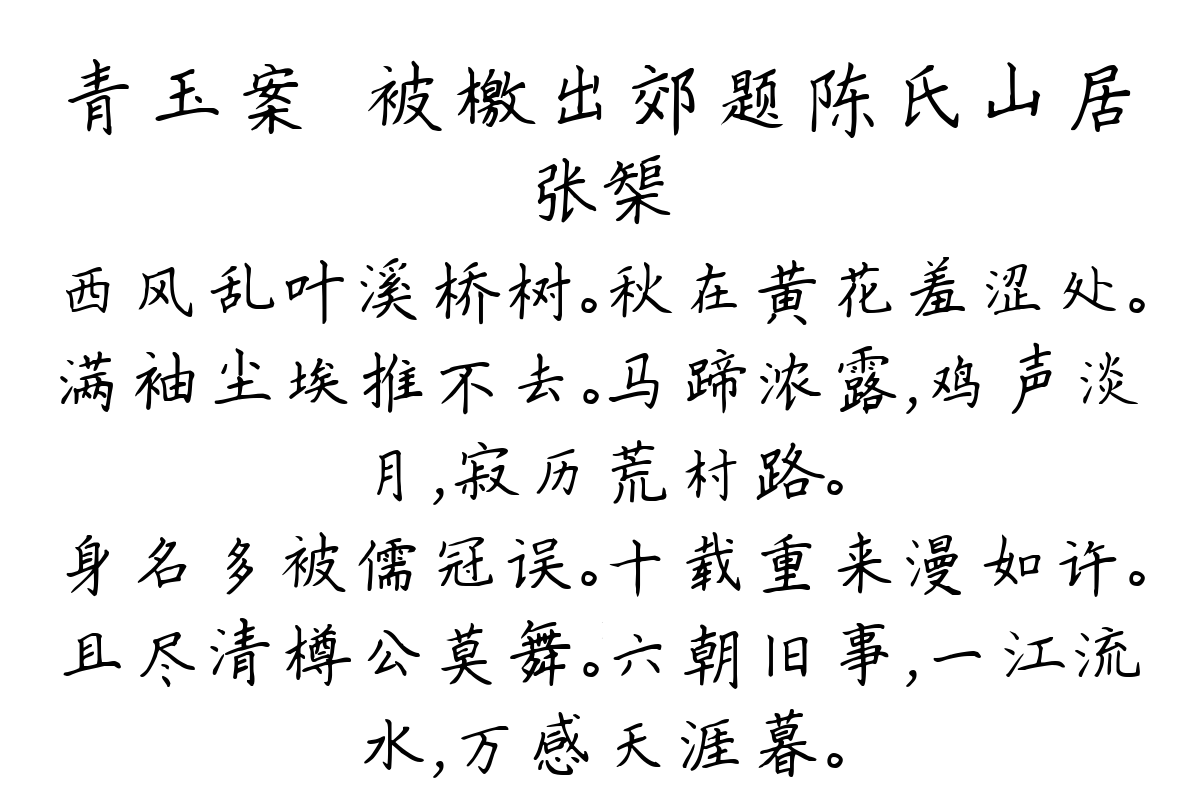 青玉案 被檄出郊题陈氏山居
张榘
西风乱叶溪桥树。秋在黄花羞涩处。
满袖尘埃推不去。马蹄浓露,鸡声淡
月,寂历荒村路。
身名多被儒冠误。十载重来漫如许。
且尽清樽公莫舞。六朝旧事,一江流
水,万感天涯暮。